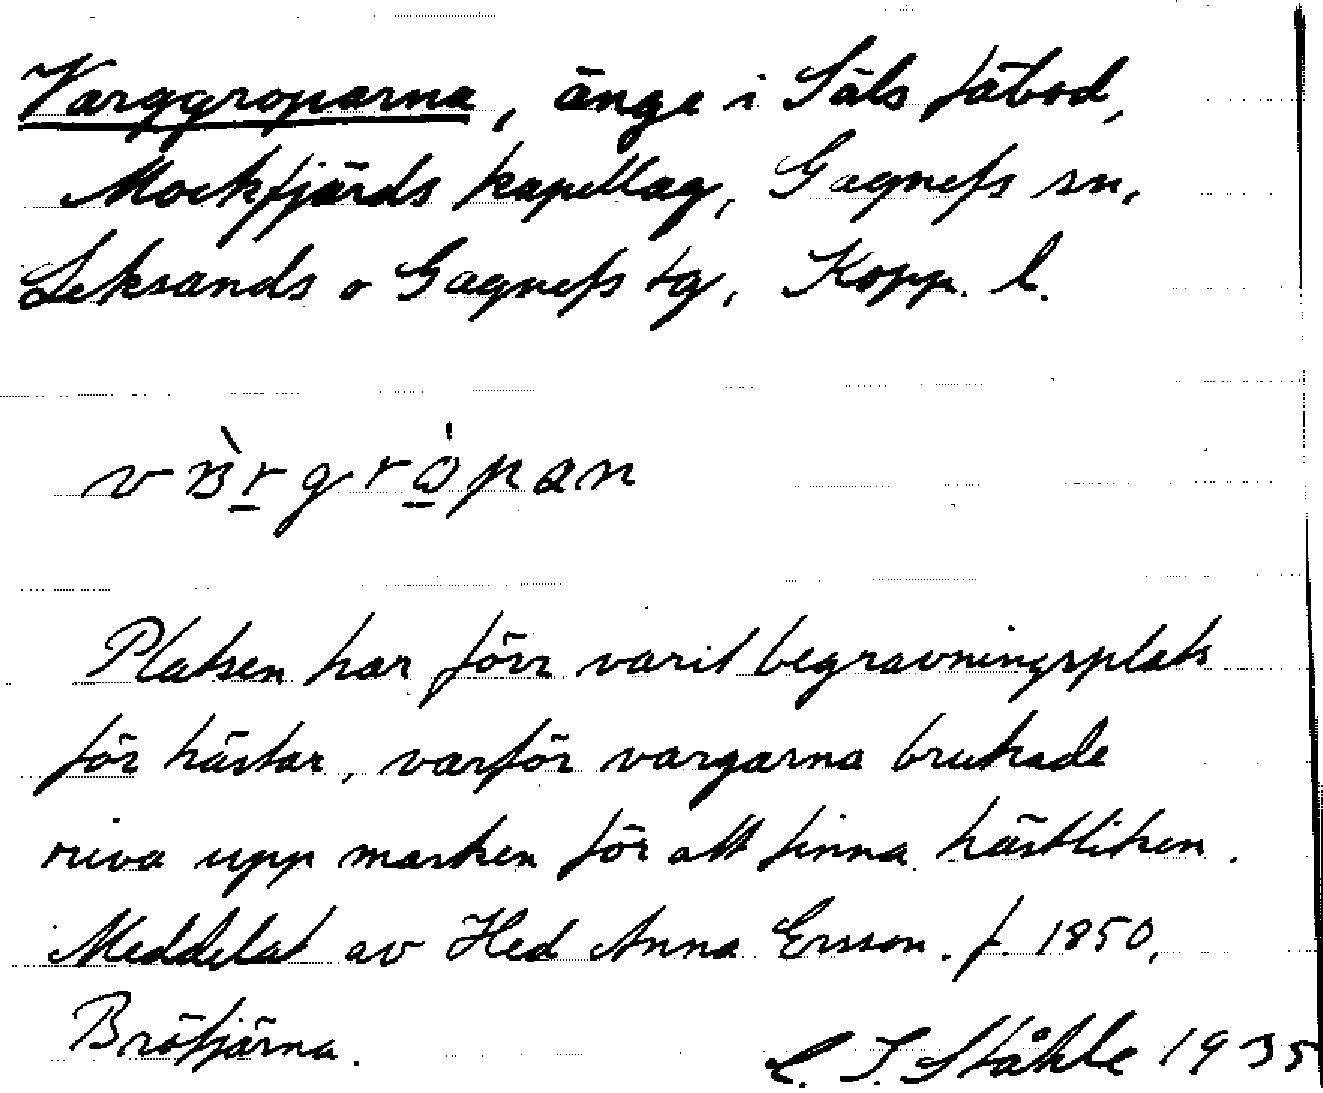 Varggroparna, änge i Säls fäbod,
Mockfjärds kapellag, Gagnefs sn,
Leksands o Gagnefs tg, Kopp. l.
Platsen har förr varit begravningsplats
för hästar, varför vargarna brukade
riva upp marken för att finna hästliken.
Meddelat av Hed Anna Ersson. f. 1850,
Brötjärna.
C. I. Ståhle 1935